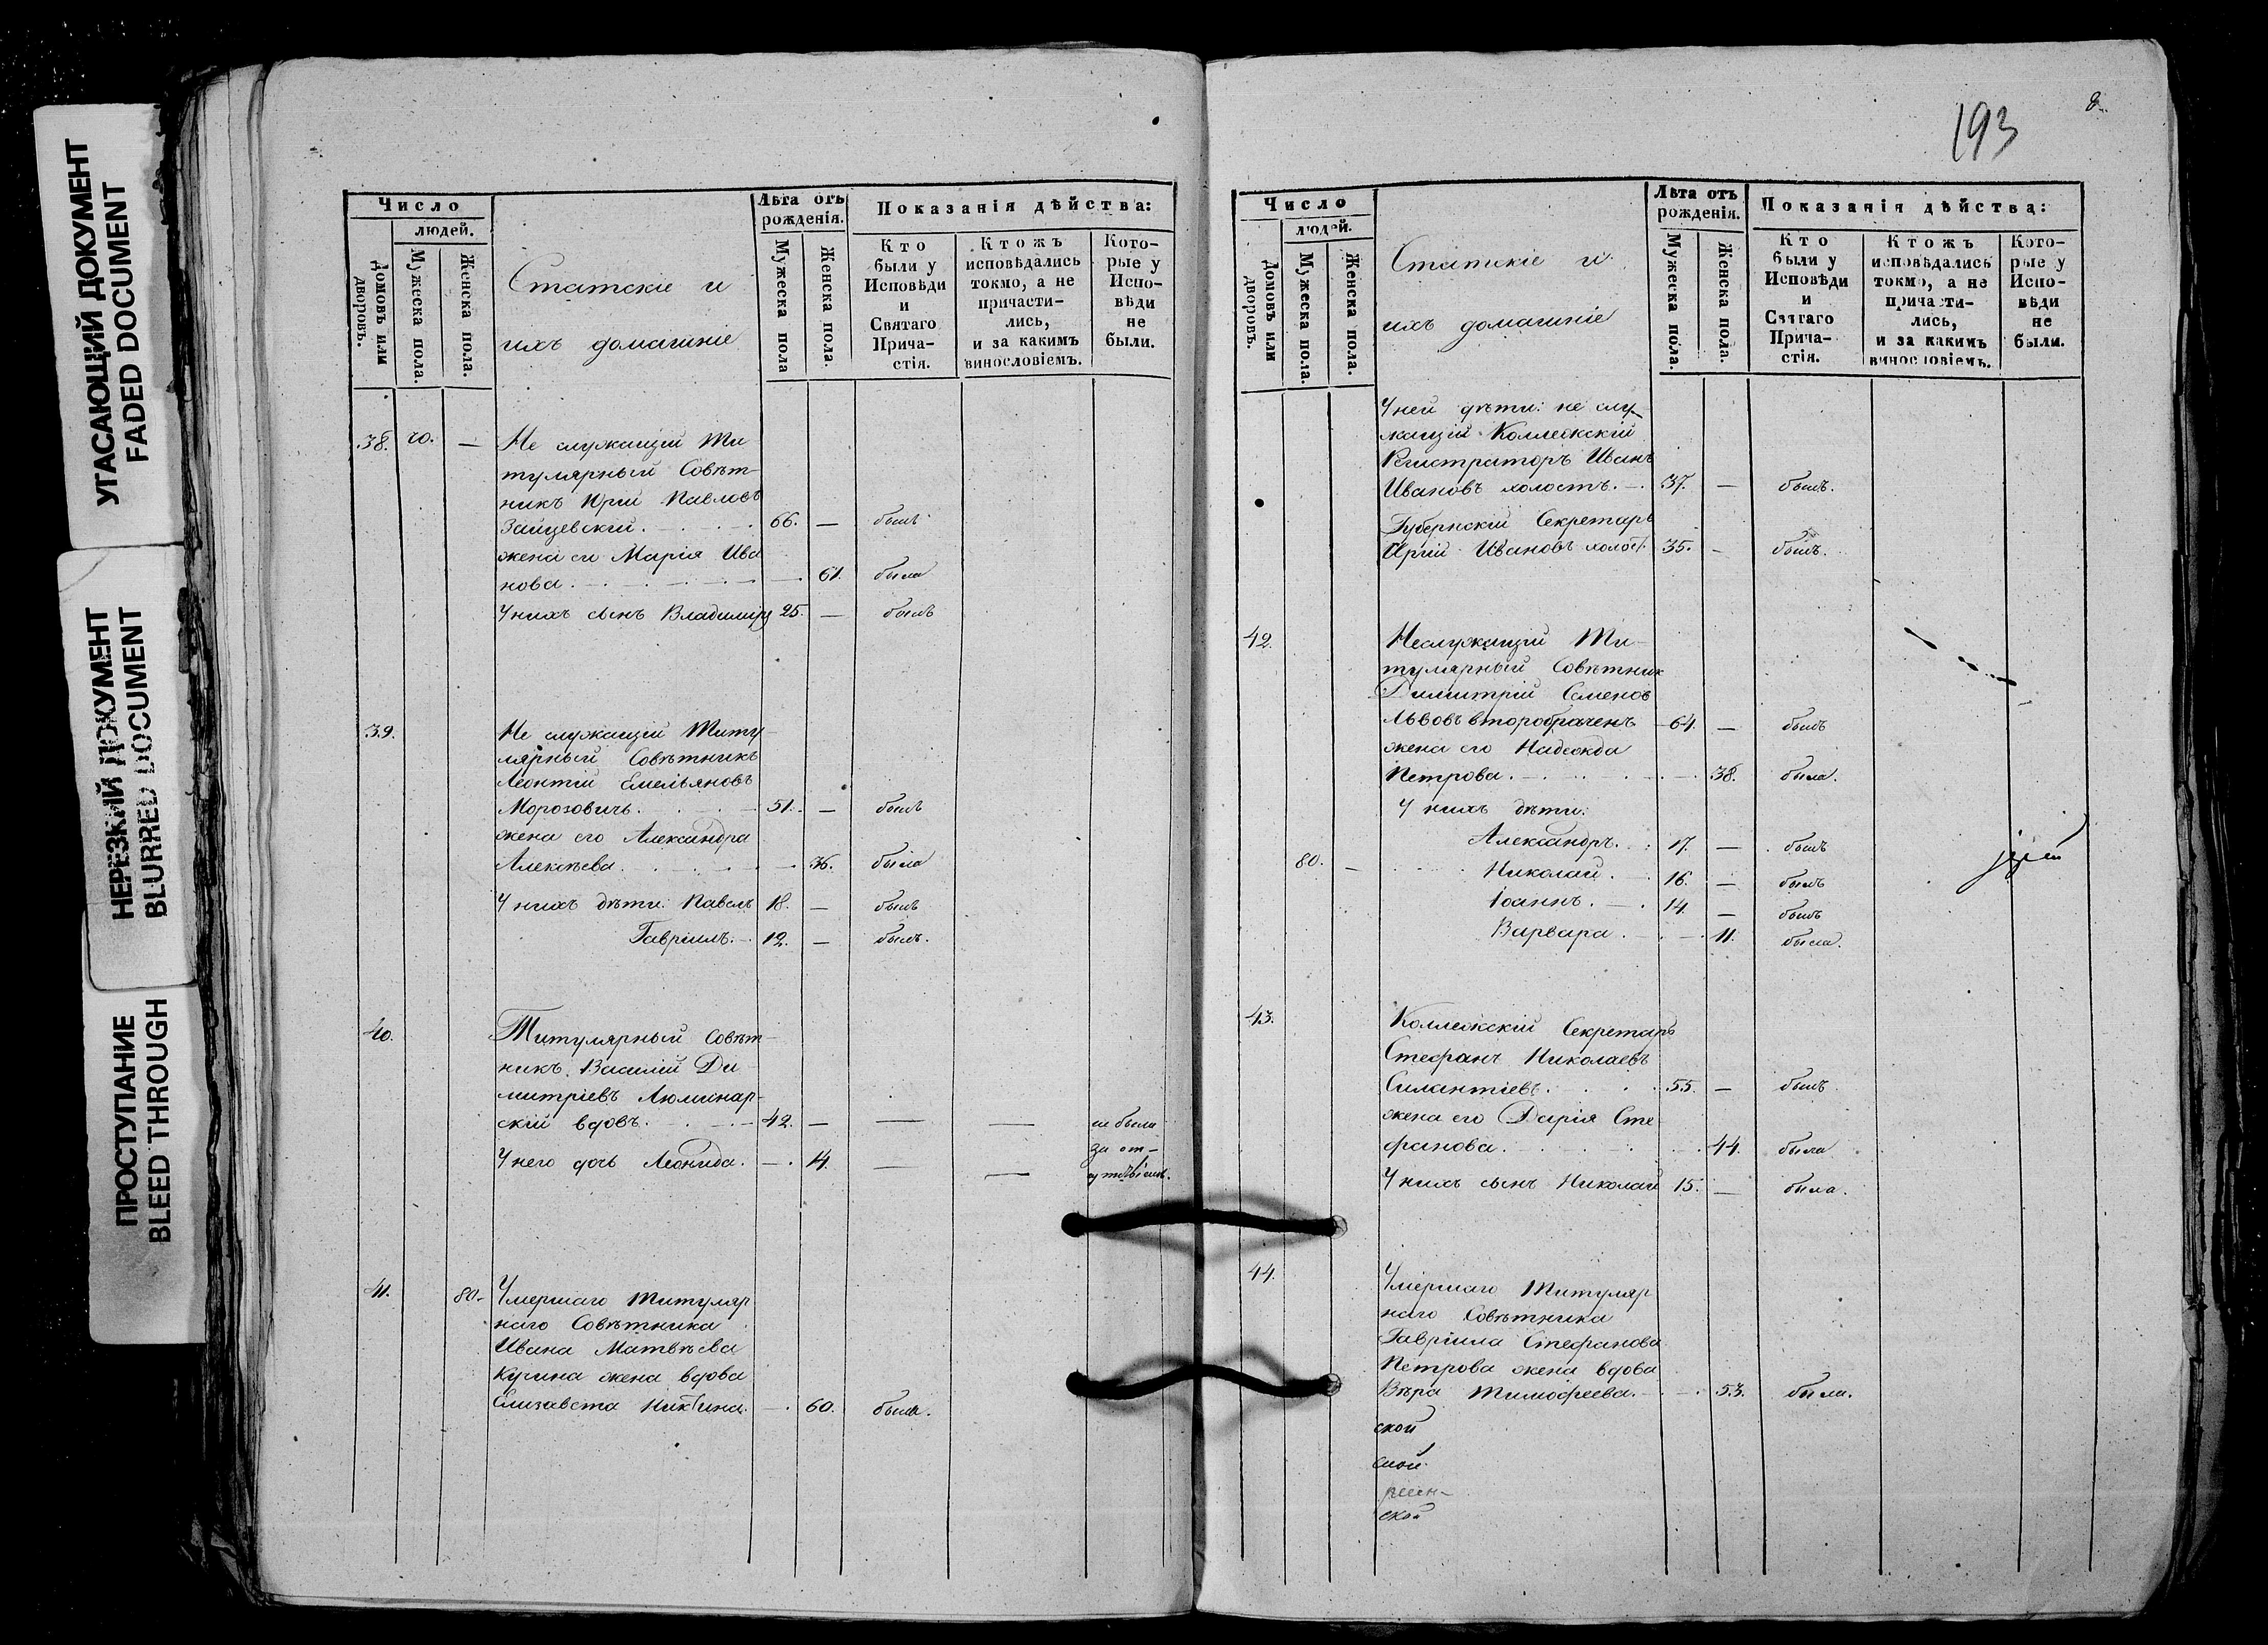 УГАСАЮЩИЙ ДОКУМЕНТ
FADED DOCUMENT
НЕРЕЗКИЙ ДОКУМЕНТ
BLURRED DOCUMENT
ПРОСТУПАНИЕ
BLEED THROUGH
Число
людей.
Домовъ или дворовъ.
Мужеска пола.
Женска пола.
Статскіе и
ихъ домашніе
Лѣта отъ рожденія.
Мужеска пола
Женска пола.
Показанія дѣйства:
Кто были у Исповѣди и Святаго Прича-стія.
Ктожъ исповѣдались токмо, а не причасти-лись, и за какимъ винословіемъ.
Кото-рые у Испо-вѣди не были.
38. — Не служащій Ти
тулярный Совѣт-
никъ Юрій Павловъ
Зайцевскій. 66. — былъ
жена его Марія Ива
нова. — 61. была
У нихъ сынъ Владиміръ 25. — былъ
39. Не служащій Титу-
лярный Совѣтникъ
Леонтій Емельяновъ
Морозовичъ. 51. — былъ
жена его Александра
Алексѣева. — 36. была
У нихъ дѣти: Павелъ 18. — былъ
Гавріилъ. 12. — былъ.
40. Титулярный Совѣт-
никъ Василій Ди-
митріевъ Люминар-
скій вдовъ. 42. — — — не были
У него дочь Леонида. — 14. — — за от-
сутствіемъ.
41. 80- Умершаго Титуляр
наго Совѣтника
Ивана Матвѣева
Кугина жена вдова
Елизавета Никитина. — 60. была.
193
8
Число
людей.
Домовъ или дворовъ.
Мужеска пола.
Женска пола.
Статскіе и
ихъ домашніе
Лѣта отъ рожденія.
Мужеска пола.
Женска пола.
Показанія дѣйства:
Кто были у Исповѣди и Святаго Прича-стія.
Ктожъ исповѣдались токмо, а не причасти-лись, и за какимъ винословіемъ.
Кото-рые у Испо-вѣди не были.
У ней дѣти: не слу-
жащій Коллежскій
Регистраторъ Иванъ
Ивановъ холостъ. 37. — былъ.
Губернскій Секретарь
Юрій Ивановъ холост. 35. — былъ.
42. Неслужащій Ти-
тулярный Совѣтник
Димитрій Семенов
Львовъ второбраченъ 64. — былъ
жена его Надежда
Петрова. — 38. была.
У нихъ дѣти:
Александръ. 17. — былъ
80. — Николай. 16. — былъ
Іоаннъ. 14. — былъ
Варвара. — 11. была.
43. Коллежскій Секретарь
Стефанъ Николаевъ
Силантіевъ. 55. — былъ
жена его Дарія Сте
фанова. — 44. была
У нихъ сынъ Николай 15. — была.
44. Умершаго Титуляр
наго Совѣтника
Гавріила Стефанова
Петрова жена вдова
Вѣра Тимофеева. — 53. была.
ской
ской